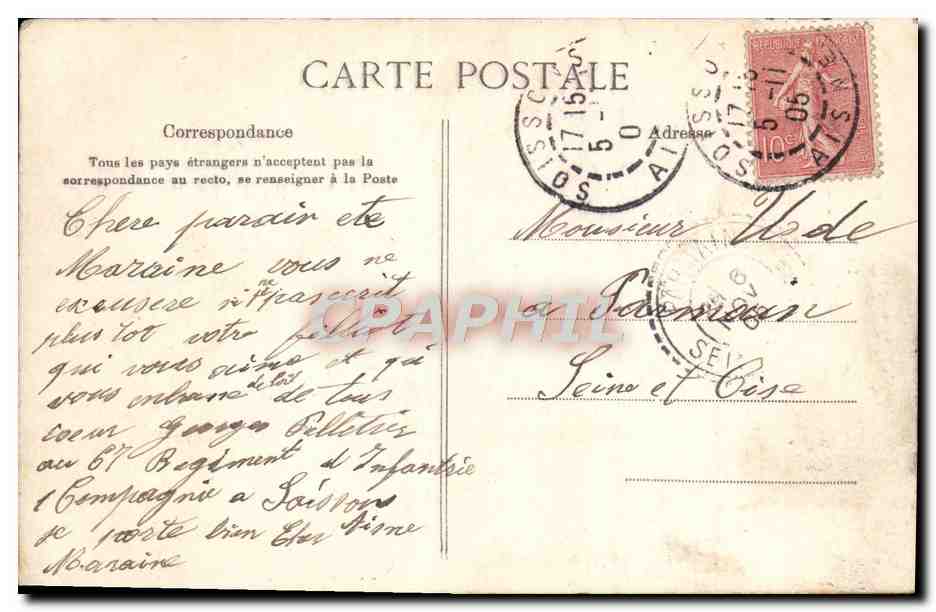 CARTE POSTALE
Correspondance
Tous les pays étrangers n'acceptent pas la
correspondance au recto, se renseigner à la Poste
Adresse
Chere parain ete
Maraine vous ne
excusere si je ne pas ecrit
plus tot votre fillot
qui vous aime et qui
vous enbrase de loi de tous
coeur Georges Pelletier
au 67 Regiment d'Infantrie
1 Compagnie a Soissons
je porte bien Cher Aisne
Maraine
Monsieur Ude
a Parmain
Seine et Oise
SOISSONS
17 15
5 - 11
0
AISNE
SOISSONS
17 15
5 - 11
05
AISNE
REPUBLIQUE FRANÇAISE
10c
6
NOV
05
SEINE
CPAPHIL